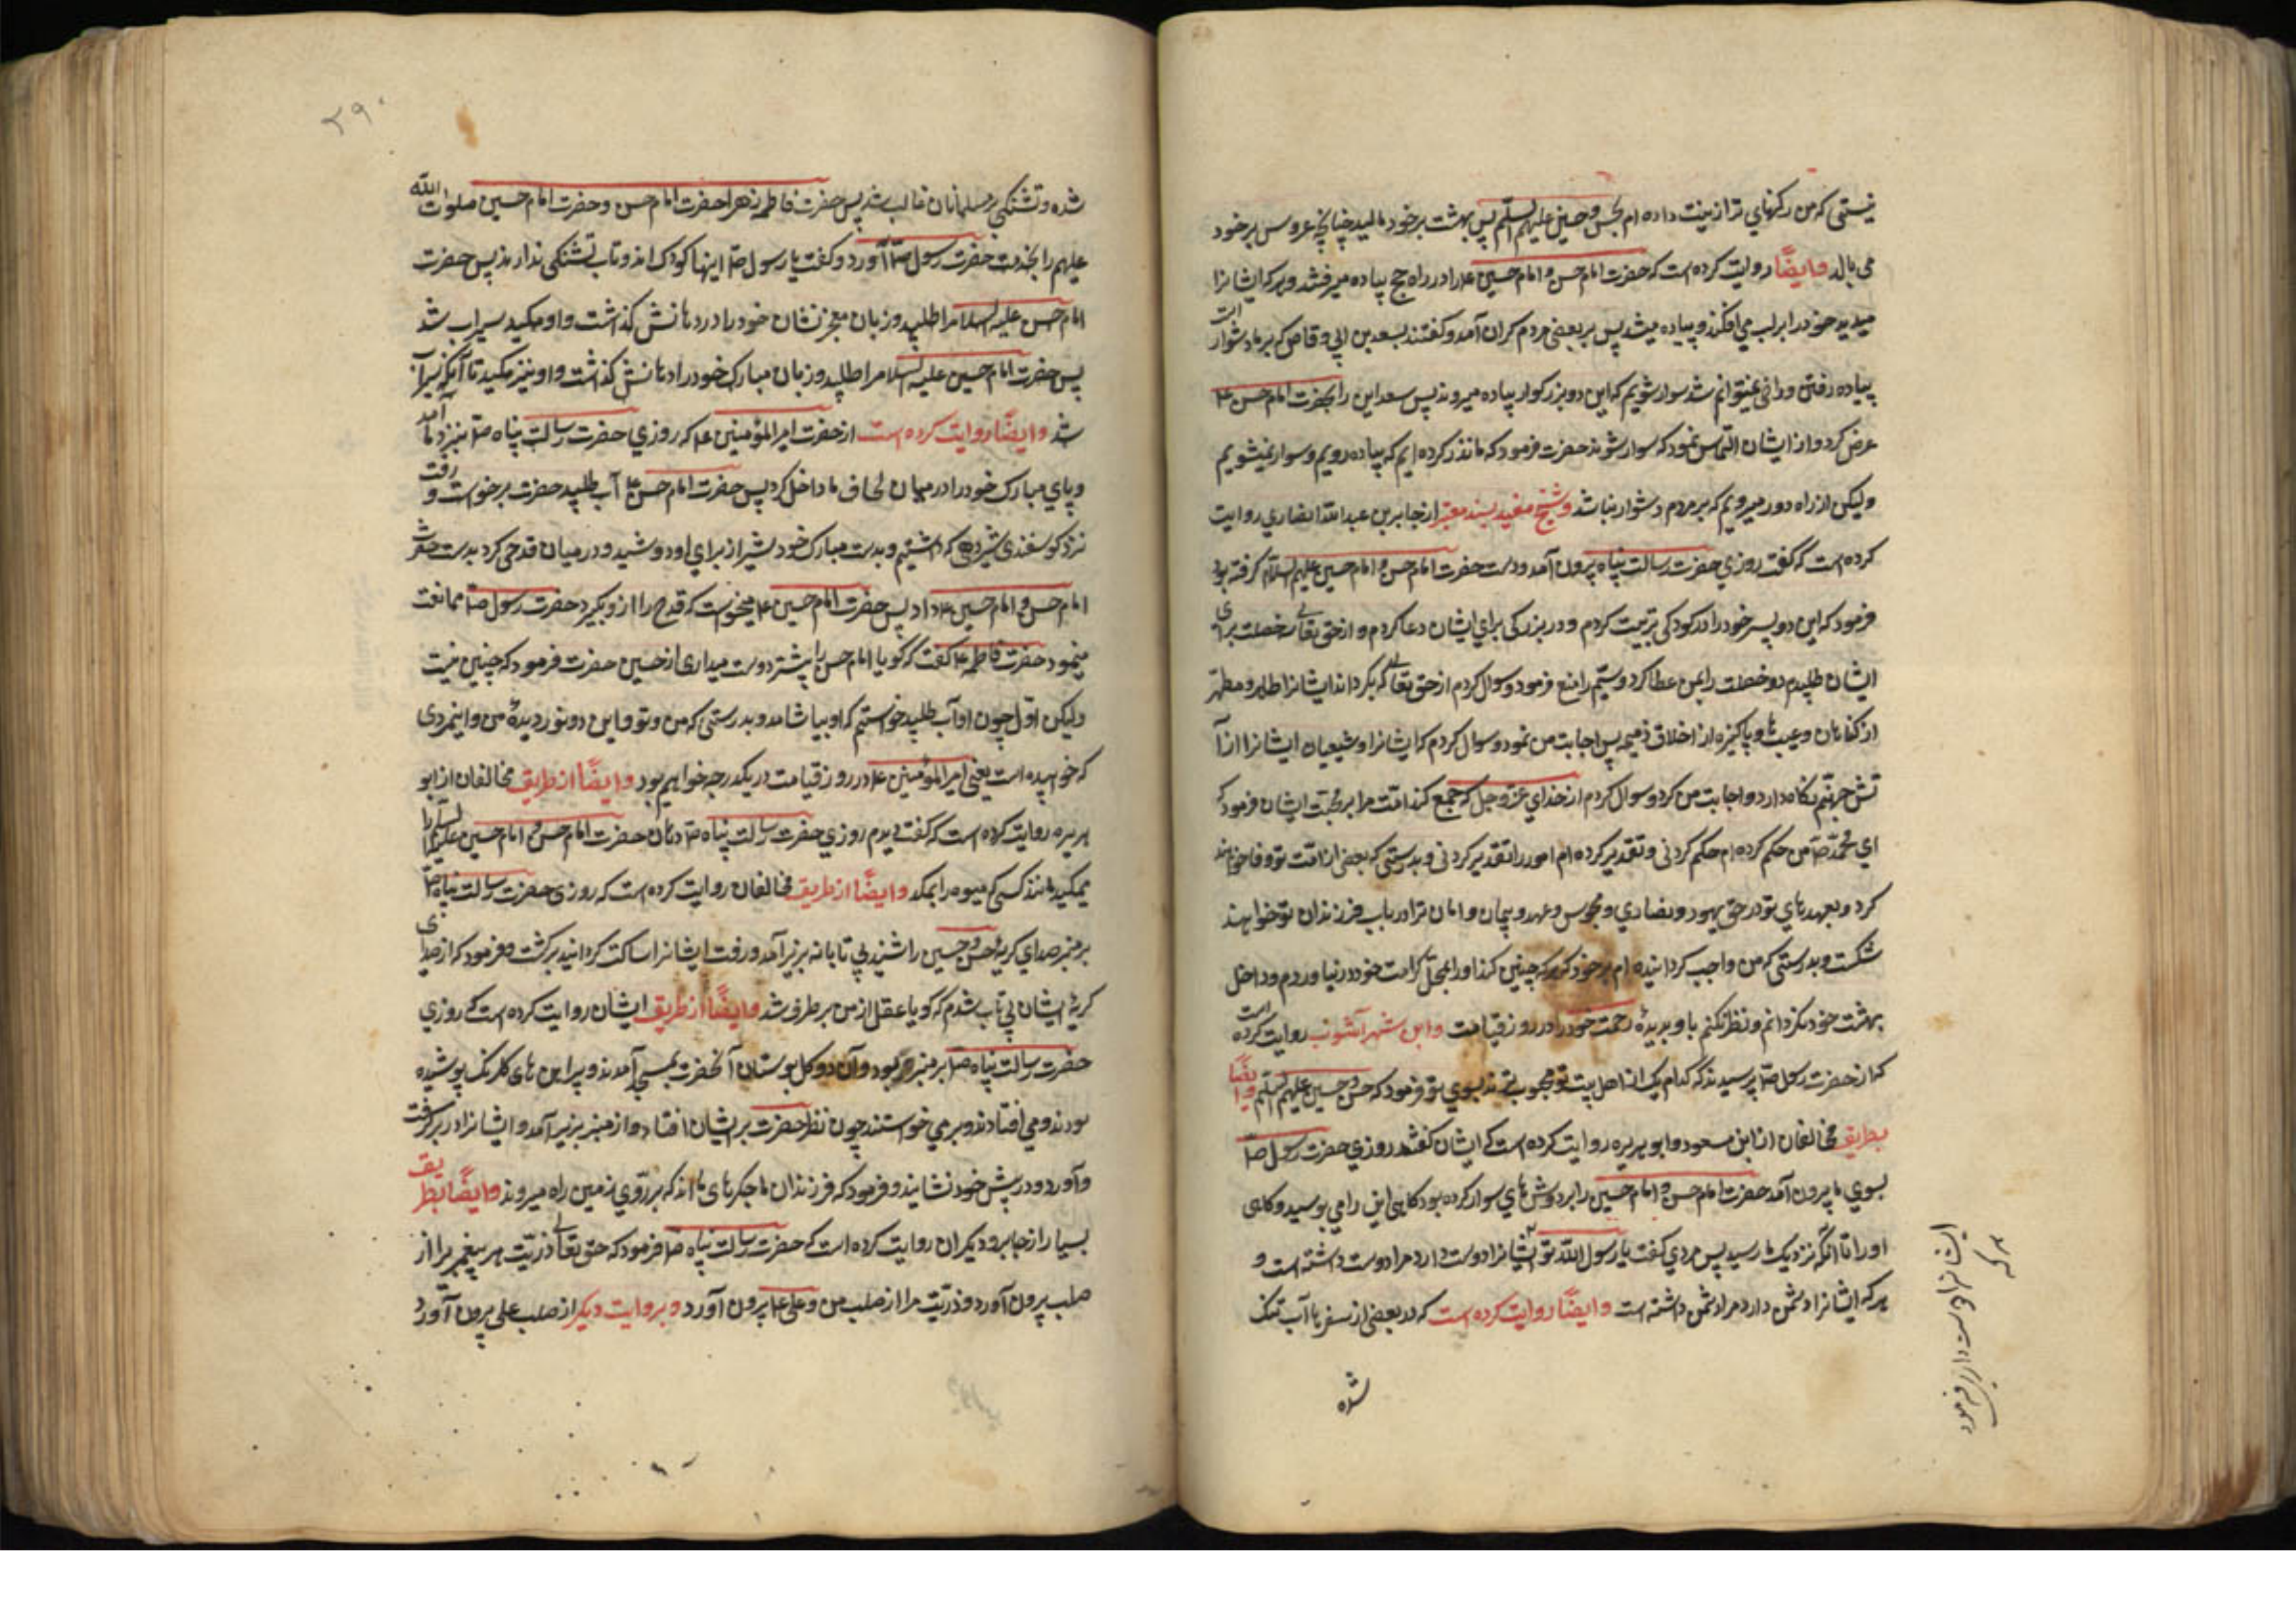 نیستی که من رکنهای ترا زینت داده ام بحسن و حسین علیهم السلم پس بهشت بر خود بالید چنانچه عروس بر خود
می بالد وایضًا روایت کرده است که حضرت امام حسن و امام حسین ع را در راه حج پیاده میرفتند و هر که ایشانرا
میدید خود را از اسب می افکند و پیاده میشد پس بر بعضی مردم کران آمد و کفتند بسعد بن ابی وقاص که بر ما دشوار است
پیاده رفتن و نمیتوانیم شد سوار شویم که این دو بزرکوار پیاده میروند پس سعد این را بحضرت امام حسن ع
عرض کرد و از ایشان التماس نمود که سوار شوند حضرت فرمود که ما نذر کرده ایم که پیاده رویم و سوار نمیشویم
ولیکن از راه دور میرویم که بر مردم دشوار نباشد و شیخ مفید بسند معتبر از جابر بن عبد الله انصاری روایت
کرده است که کفت روزی حضرت رسالت پناه بیرون آمد و دست حضرت امام حسن و امام حسین علیهم السلام کرفته بود
فرمود که این دو پسر خود را در کودکی تربیت کردم و در بزرکی برای ایشان دعا کردم و از حق تعالی سه خصلت برای
ایشان طلبیدم دو خصلت را بمن عطا کرد و سیّم را منع فرمود و سوال کردم از حق تعالی که بکرداند ایشانرا طاهر و مطهّر
از کناهان و عیب ها و پاکیزه از اخلاق ذمیمه پس اجابت من نمود و سوال کردم که ایشانرا و شیعیان ایشانرا از آ
تش جهنّم نکاه دارد و اجابت من کرد و سوال کردم از خدای عزّ و جل که جمع کند امّت مرا بر محبّت ایشان فرمود که
ای محمّد ص من حکم کرده ام حکم کردنی و تقدیر کرده ام امور را تقدیر کردنی و بدرستی که بعضی از امّت تو وفا خواهند
کرد و بعهدهای تو در حق یهود و نصاری و مجوس و عهد و پیمان و امان ترا در باب فرزندان تو خواهند
شکست و بدرستی که من واجب کردانیده ام بر خود که هر که چنین کند او را بمحلّ کرامت خود در نیاورم و داخل
بهشت خود نکردانم و نظر نکنم باو بدیدهٔ رحمت خود در روز قیامت و ابن شهر آشوب روایت کرده است
که از حضرت رسول ص پرسیدند که کدام یک از اهل بیت تو محبوب ترند بسوی تو فرمود که حسن و حسین علیهم السلم وایضًا
بطریق مخالفان از ابن مسعود و ابو هریره روایت کرده است که ایشان کفتند روزی حضرت رسول ص
بسوی ما بیرون آمد حضرت امام حسن و امام حسین را بر دوش های سوار کرده بود کاهی این را می بوسید و کاهی
او را تا آنکه نزدیک ما رسید پس مردی کفت یا رسول الله تو ایشانرا دوست دارد مرا دوست داشته است و
هر که ایشانرا دشمن دارد مرا دشمن داشته است وایضًا روایت کرده است که در بعضی از سفرها آب تنک
شده
ایشانرا دوست داری فرمود
هر که
۲۹۰
شده و تشنکی بر مسلمانان غالب شد پس حضرت فاطمه زهرا حضرت امام حسن و حضرت امام حسین صلوات الله
علیهم را بخدمت حضرت رسول ص آورد و کفت یا رسول ص اینها کودک اند و تاب تشنکی ندارند پس حضرت
امام حسن علیه السلام را طلبید و زبان معجز نشان خود را در دهانش کذاشت و او میمکید سیراب شد
پس حضرت امام حسین علیه السلام را طلبید و زبان مبارک خود را در دهانش کذاشت و او نیز مکید تا آنکه سیراب
شد وایضًا روایت کرده است از حضرت امیر المؤمنین ع که روزی حضرت رسالت پناه ص بنزد ما آمد
و پای مبارک خود را در میان لحاف ما داخل کرد پس حضرت امام حسن ع آب طلبید حضرت برخواست و رفت
نزد کوسفندی شیرده که داشتیم و بدست مبارک خود شیر از برای او دوشید و در میان قدحی کرد بدست حضرت
امام حسن و امام حسین ع داد پس حضرت امام حسین ع میخواست که قدح را از و بکیرد حضرت رسول ص ممانعت
مینمود حضرت فاطمه ع کفت که کویا امام حسن را بیشتر دوست میداری از حسین حضرت فرمود که چنین نیست
ولیکن اوّل چون او آب طلبید خواستم که او بیاشامد و بدرستی که من و تو و این دو نور دیدهٔ من و اینمردی
که خوابیده است یعنی امیر المؤمنین ع در روز قیامت در یکدرجه خواهیم بود وایضًا از طریق مخالفان از ابو
هریره روایت کرده است که کفت دیدم روزی حضرت رسالت پناه ص دهان حضرت امام حسن و امام حسین علیهم السلم را
میمکید مانند کسی که میوه را بمکد وایضًا از طریق مخالفان روایت کرده است که روزی حضرت رسالت پناه ص
بر منبر صدای کریهٔ حسن و حسین را شنید بی تابانه بزیر آمد و رفت ایشانرا ساکت کردانید برکشت و فرمود که از صدای
کریهٔ ایشان بی تاب شدم که کویا عقل از من بر طرف شد وایضًا از طریق ایشان روایت کرده است که روزی
حضرت رسالت پناه ص بر منبر بود و آن دو کل بوستان آنحضرت بمسجد آمدند و پیراهن های کلرنک پوشیده
بودند و می افتادند و بر می خواستند چون نظر حضرت بر ایشان افتاد و از منبر بزیر آمد و ایشانرا در بر کرفت
و آورد و در پیش خود نشانید و فرمود که فرزندان ما جکرهای ما اند که بر روی زمین راه میروند وایضًا بطریق
بسیار از جابر و دیکران روایت کرده است که حضرت رسالت پناه ص فرمود که حق تعالی ذرّیّت هر پیغمبر را از
صلب بیرون آورد و ذرّیّت مرا از صلب من و علی ع بیرون آورد و بروایت دیکر از صلب علی بیرون آورد